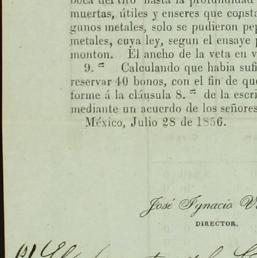 boca del tiro hasta la profundidad
muertas, útiles y enseres que consta
gunos metales, solo se pudieron pe
metales, cuya ley, segun el ensaye p
monton. El ancho de la veta en v
9.ª Calculando que habia sufi
reservar 40 bonos, con el fin de qu
forme á la cláusula 8.ª de la escri
mediante un acuerdo de los señores
México, Julio 28 de 1856.
José Ygnacio V
DIRECTOR.